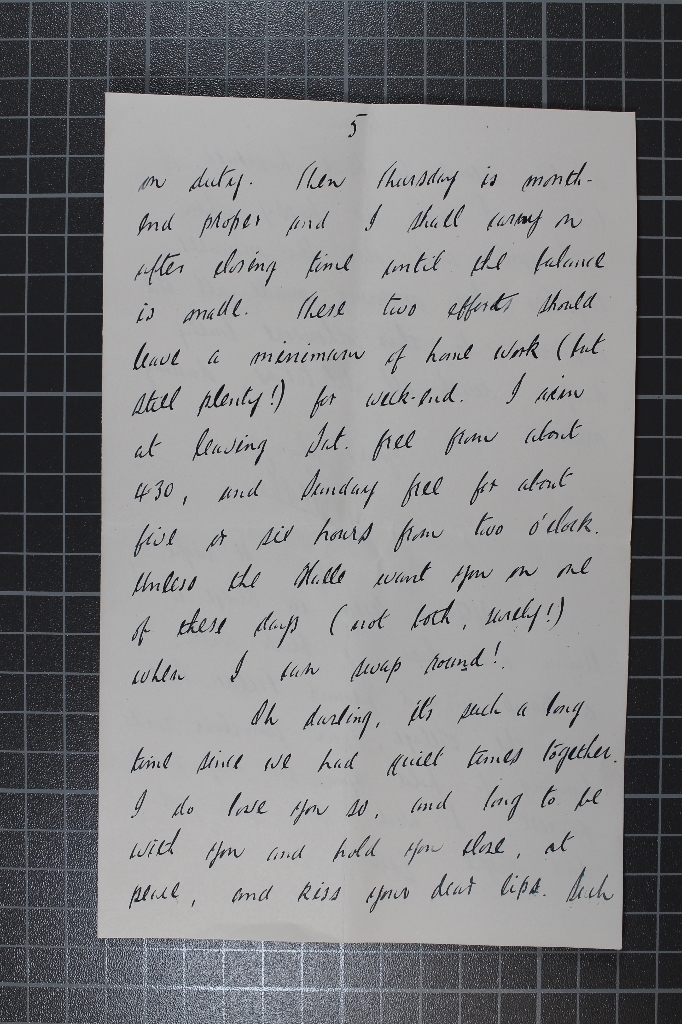 5
on duty. Then Thursday is month-
end proper and I shall carry on
after closing time until the balance
is made. These two efforts should
leave a minimum of home work (but
still plenty!) for week-end. I aim
at leaving Sat. free from about
4.30, and Sunday free for about
five or six hours from two o'clock.
Unless the Halle want you on one
of these days (not both, surely!)
when I can swap round!
Oh darling, it's such a long
time since we had quiet times together.
I do love you so, and long to be
with you and hold you close, at
peace, and kiss your dear lips. Such